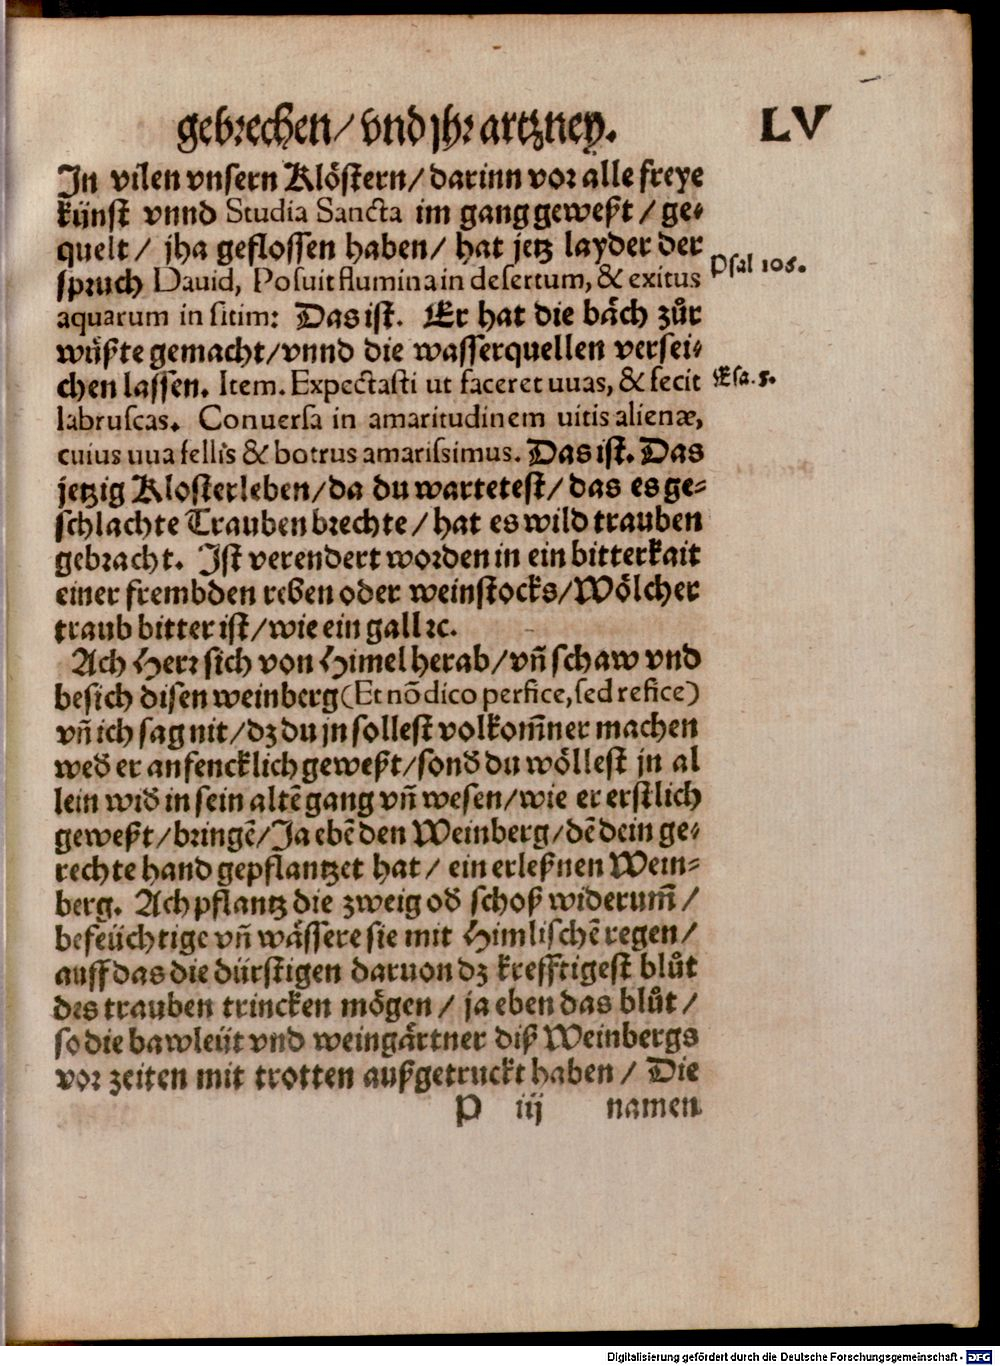 gebrechen/ vnd jhr artzney. LV
In vilen vnsern Klöstern/ darinn vor alle freye
künst vnnd Studia Sancta im gang geweßt / ge⸗
quelt / jha geflossen haben/ hat jetz layder der
spruch Dauid, Posuit flumina in desertum, & exitus
Psal 106.
aquarum in sitim: Das ist. Er hat die bäch zůr
wüßte gemacht/ vnnd die wasserquellen versei⸗
chen lassen. Item. Expectasti ut faceret uuas, & fecit
Esa. 5.
labruscas. Conuersa in amaritudinem uitis alienæ,
cuius uua fellis & botrus amarissimus. Das ist. Das
jetzig Klosterleben/ da du wartetest/ das es ge⸗
schlachte Trauben brechte / hat es wild trauben
gebracht. Ist verendert worden in ein bitterkait
einer frembden reben oder weinstocks/ Wölcher
traub bitter ist/ wie ein gall ꝛc.
Ach Herr sich von Himel herab/ vñ schaw vnd
besich disen weinberg (Et nõ dico perfice, sed refice)
vñ ich sag nit/ dz du jn sollest volkom̃ner machen
wed er anfencklich geweßt/ sond du wöllest jn al
lein wid in sein altẽ gang vñ wesen/ wie er erstlich
geweßt/ bringẽ/ Ja ebẽ den Weinberg/ dẽ dein ge⸗
rechte hand gepflantzet hat / ein erleßnen Wein⸗
berg. Ach pflantz die zweig od schoß widerum̃ /
befeüchtige vñ wässere sie mit Himlischẽ regen/
auff das die dürstigen daruon dz krefftigest blůt
des trauben trincken mögen / ja eben das blůt /
so die bawleüt vnd weingärtner diß Weinbergs
vor zeiten mit trotten außgetruckt haben / Die
P iij namen
Digitalisierung gefördert durch die Deutsche Forschungsgemeinschaft - DFG